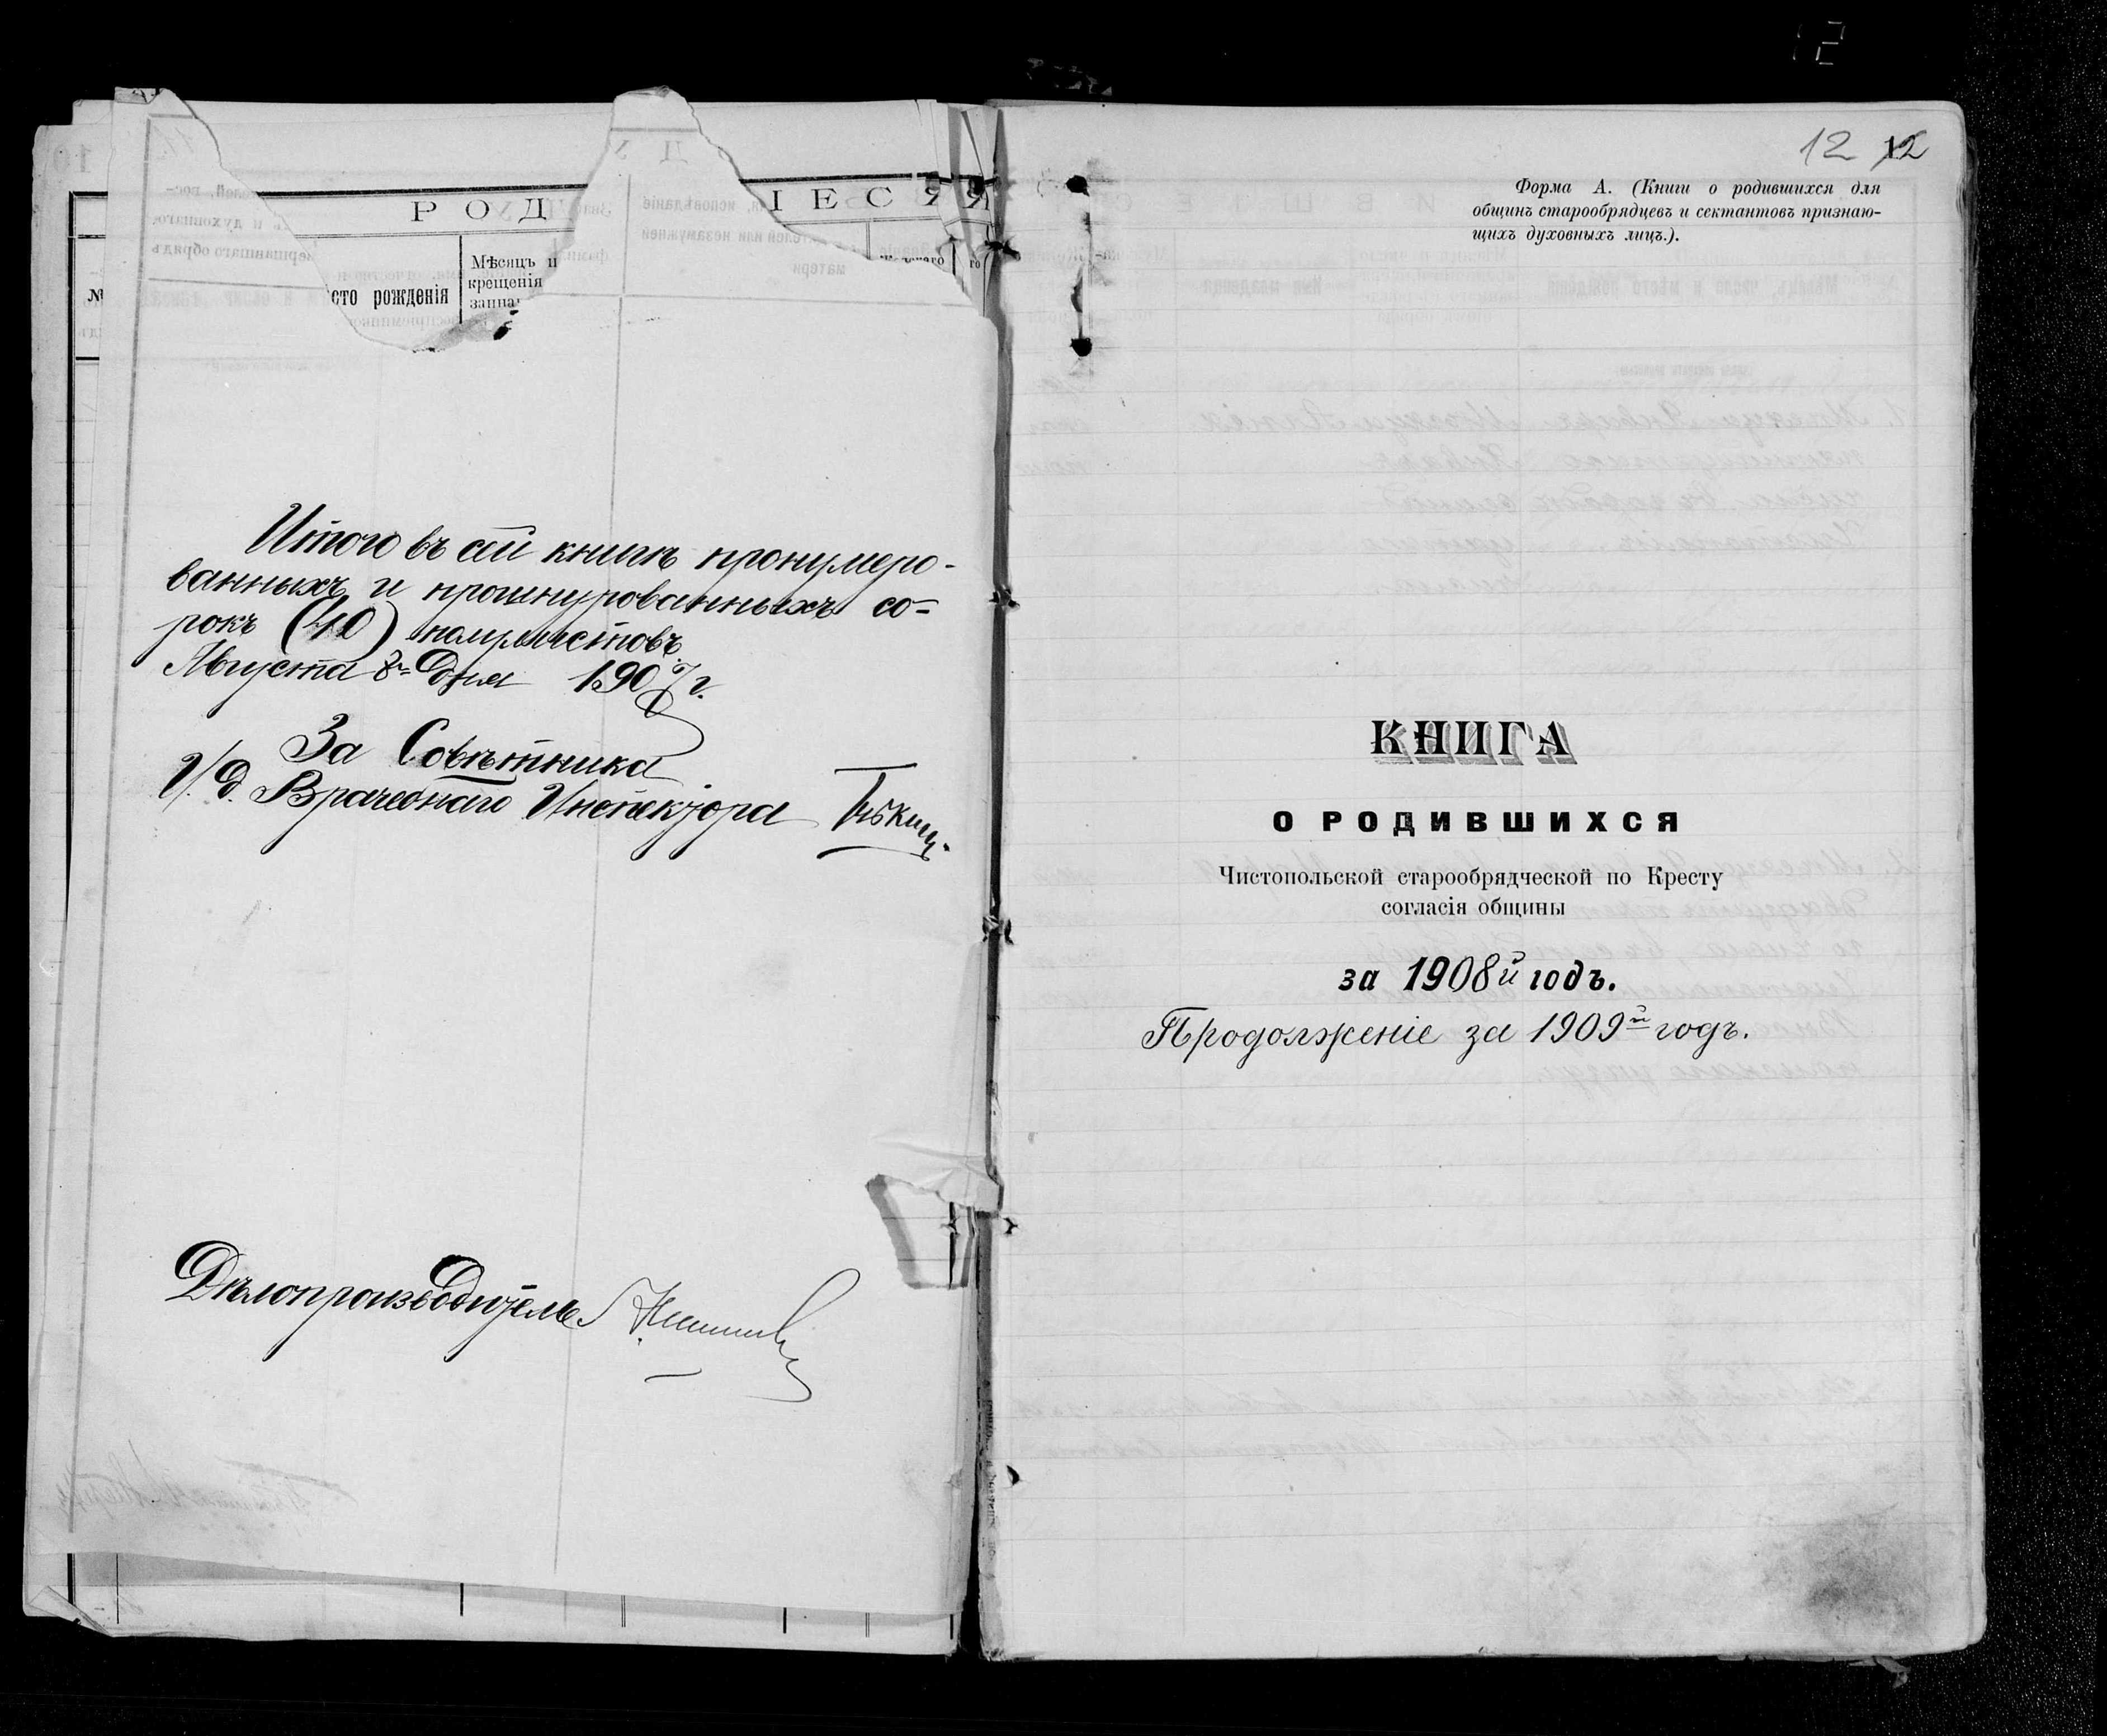 РОД
ШЕСЯ
№
сто рожденія
Мѣсяцъ и
крещенія
Итого въ сей книгѣ пронумеро-
ванныхъ и прошнурованныхъ со-
рокъ (40) полулистовъ
Августа 8 дня 1907 г.
За Совѣтника
И. д. Врачебнаго Инспектора
Дѣлопроизводитель
12 12
Форма А. (Книги о родившихся для
общинъ старообрядцевъ и сектантовъ признаю-
щихъ духовныхъ лицъ.).
КНИГА
О РОДИВШИХСЯ
Чистопольской старообрядческой по Кресту
согласія общины
за 1908й годъ.
Продолженіе за 1909й годъ.